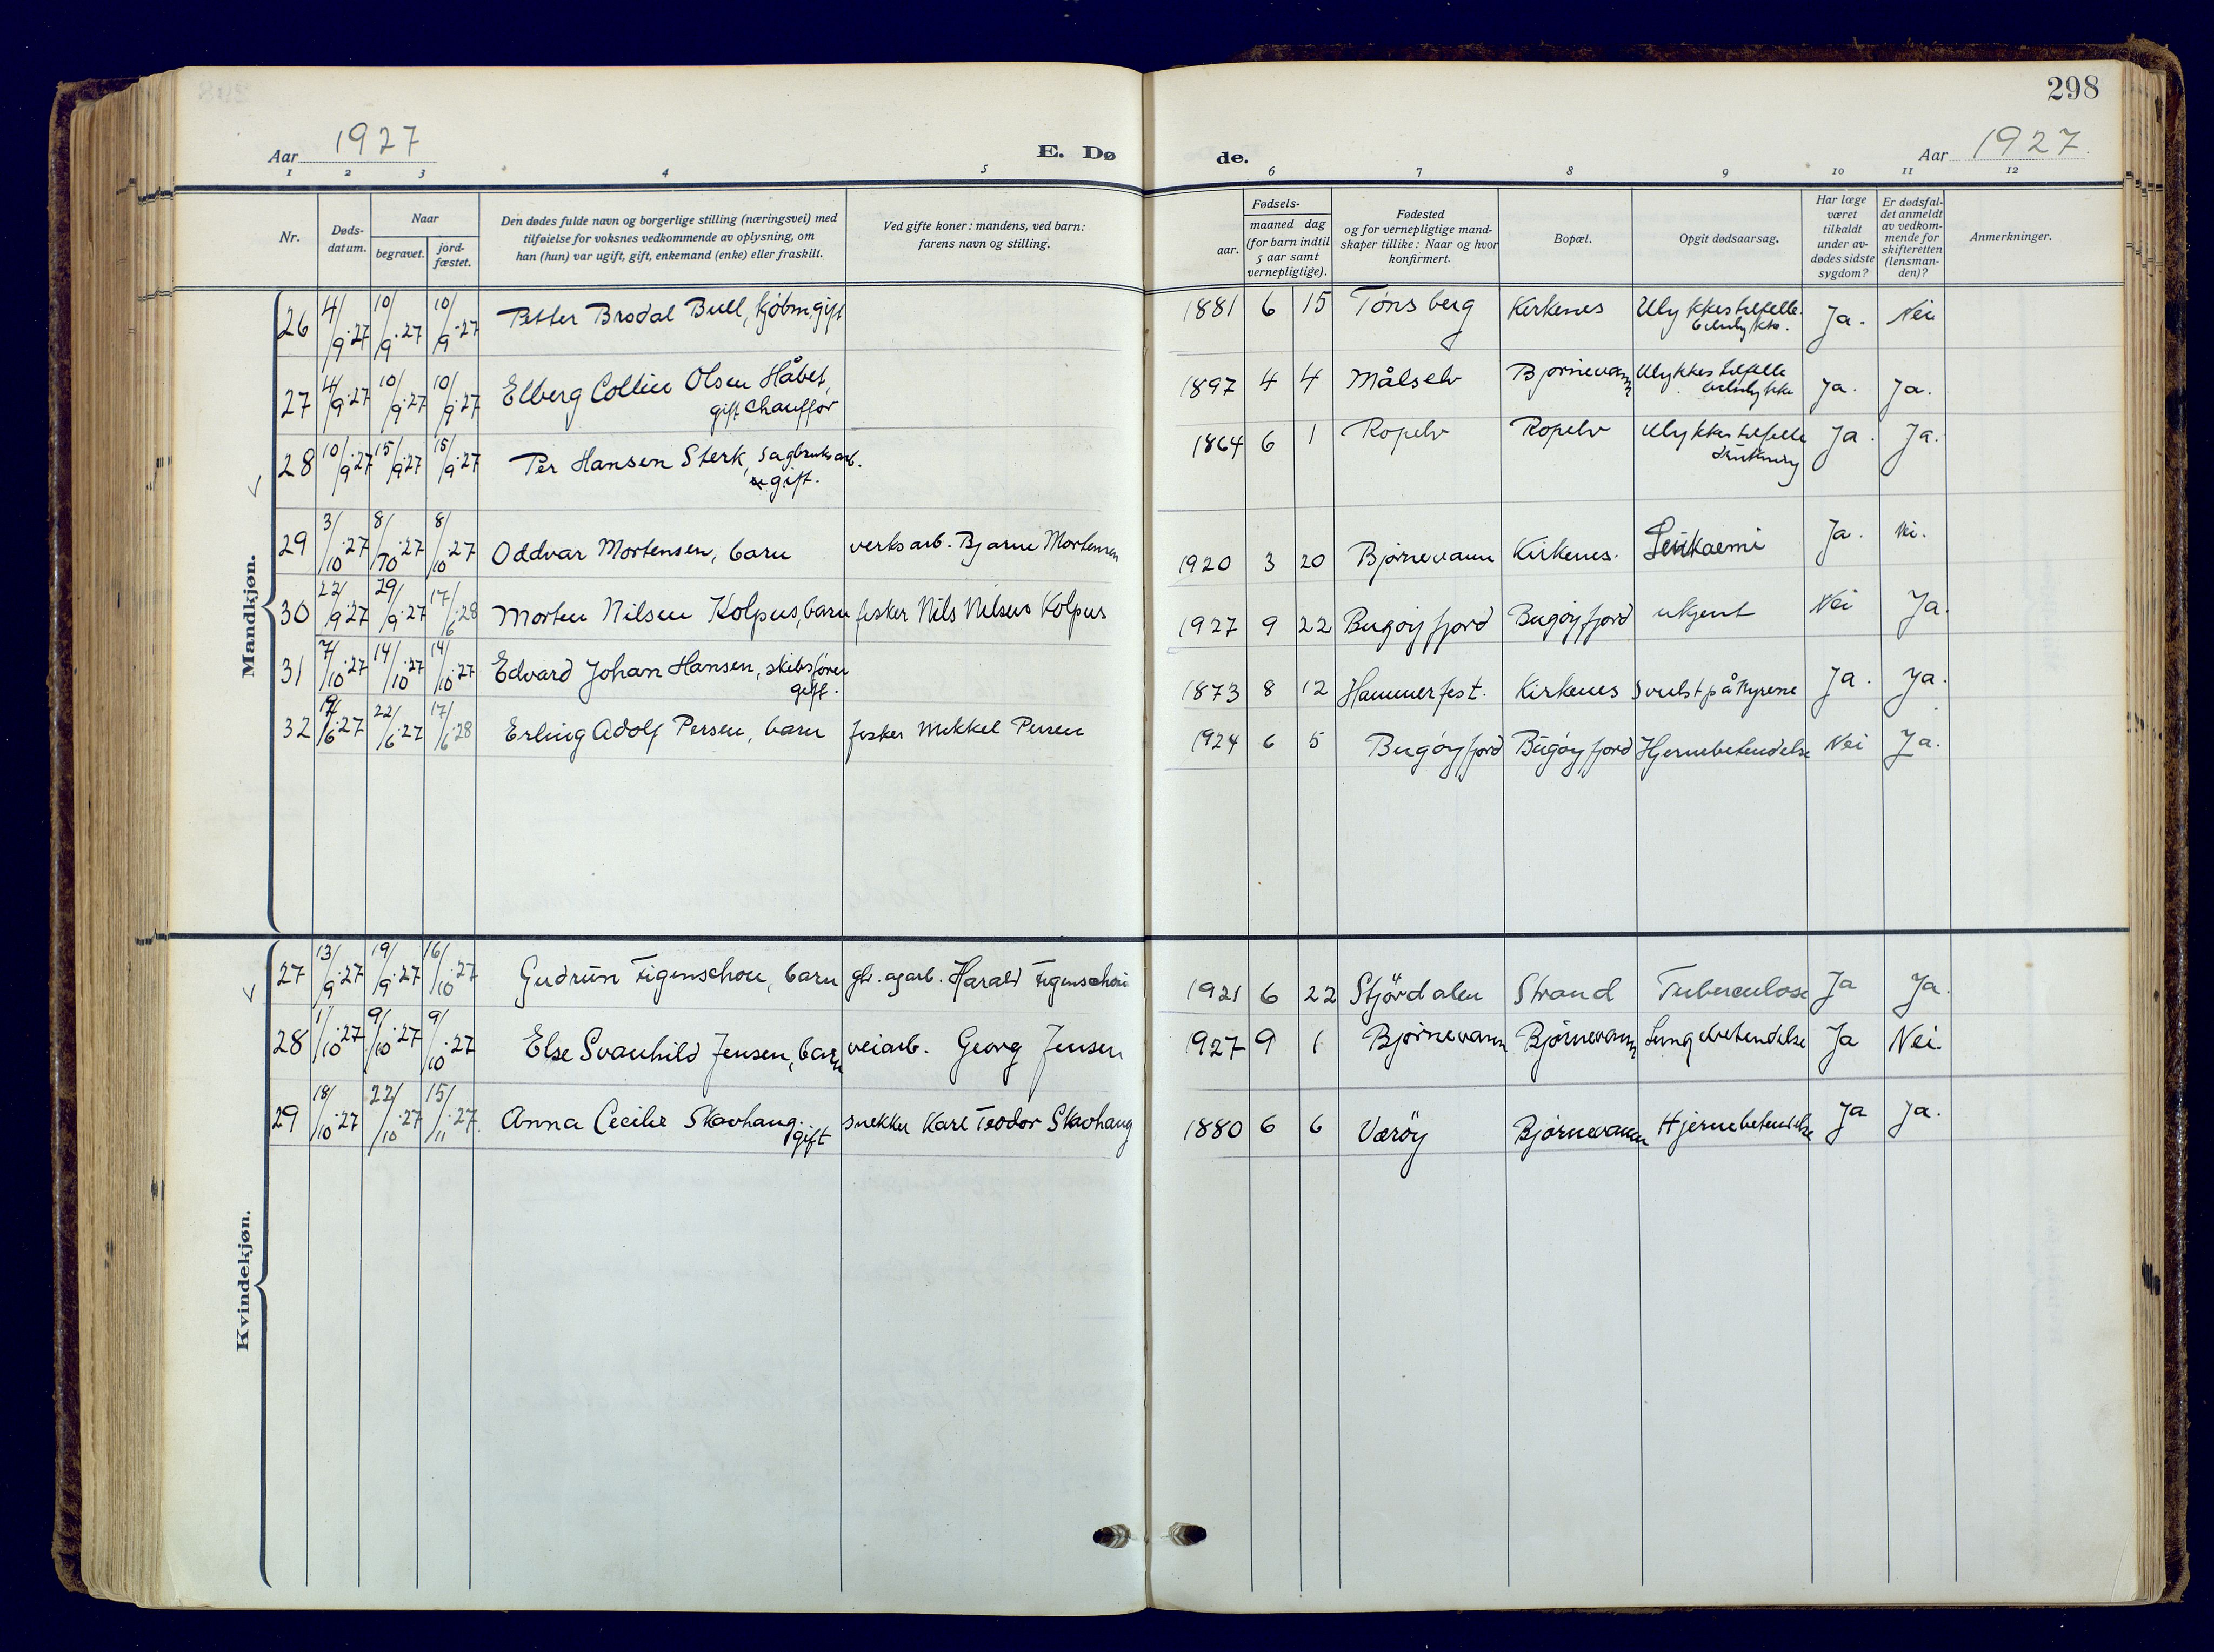 298
Aar 1927
E. Dø
de.
Aar 1927.
1 2 3 4 5
6 7 8 9 10 11 12
Nr.
Døds-
datum.
Naar
begravet.
jord-
fæstet.
Den dødes fulde navn og borgerlige stilling (næringsvei) med
tilføielse for voksnes vedkommende av oplysning, om
han (hun) var ugift, gift, enkemand (enke) eller fraskilt.
Ved gifte koner: mandens, ved barn:
farens navn og stilling.
Fødsels-
aar.
maaned dag
(for barn indtil
5 aar samt
vernepligtige).
Fødested
og for vernepligtige mand-
skaper tillike: Naar og hvor
konfirmert.
Bopæl.
Opgit dødsaarsag.
Har læge
været
tilkaldt
under av-
dødes sidste
sygdom?
Er dødsfal-
det anmeldt
av vedkom-
mende for
skifteretten
(lensman-
den)?
Anmerkninger.
Mandkjøn.
26 4/9·27 10/9·27 10/9·27 Petter Brodal Bull, kjöbm, gift 1881 6 15 Tönsberg Kirkenes Ulykkestilfelle. Ja. Nei
Bilulykke.
27 4/9·27 10/9·27 10/9·27 Elberg Collin Olsen Håbet, 1897 4 4 Målselv Björnevann Ulykkestilfelle Ja. Ja.
gift Chauffør Bilulykke
28 10/9·27 15/9·27 15/9·27 Per Hansen Sterk, sagbruksarb. 1864 6 1 Ropelv Ropelv Ulykkestilfelle Ja. Ja.
gift. drukning
29 3/10·27 8/10·27 8/10·27 Oddvar Mortensen, barn verksarb. Bjarne Mortensen 1920 3 20 Björnevann Kirkenes. Leukaemi Ja. Nei.
30 22/9·27 29/9·27 17/6·28 Morten Nilsen Kolpus, barn fisker Nils Nilsens Kolpus 1927 9 22 Bugöyfjord Bugöyfjord ukjent Nei Ja.
31 7/10·27 14/10·27 14/10·27 Edvard Johan Hansen, skibsförer 1873 8 12 Hammerfest. Kirkenes Svulst på Nyrene Ja. Ja.
gift.
32 /6·27 22/6·27 17/6·28 Erling Adolf Persen, barn fisker Mikkel Persen 1924 6 5 Bugöyfjord Bugöyfjord Hjernebetendelse Nei Ja.
Kvindekjøn.
27 13/9·27 19/9·27 16/10·27 Gudrun Figenschou, barn Harald Figenschou 1921 6 22 Stjördalen Strand Tuberculose Ja Ja.
28 1/10·27 9/10·27 9/10·27 Else Svanhild Jensen, barn veiarb. Georg Jensen 1927 9 1 Björnevann Björnevann Lungebetendelse Ja Nei.
29 18/10·27 22/10·27 15/11·27. Anna Cecilie Skavhaug. snekker Karl Teodor Skavhaug 1880 6 6 Væröy Björnevann Hjernebetendelse Ja Ja.
gift